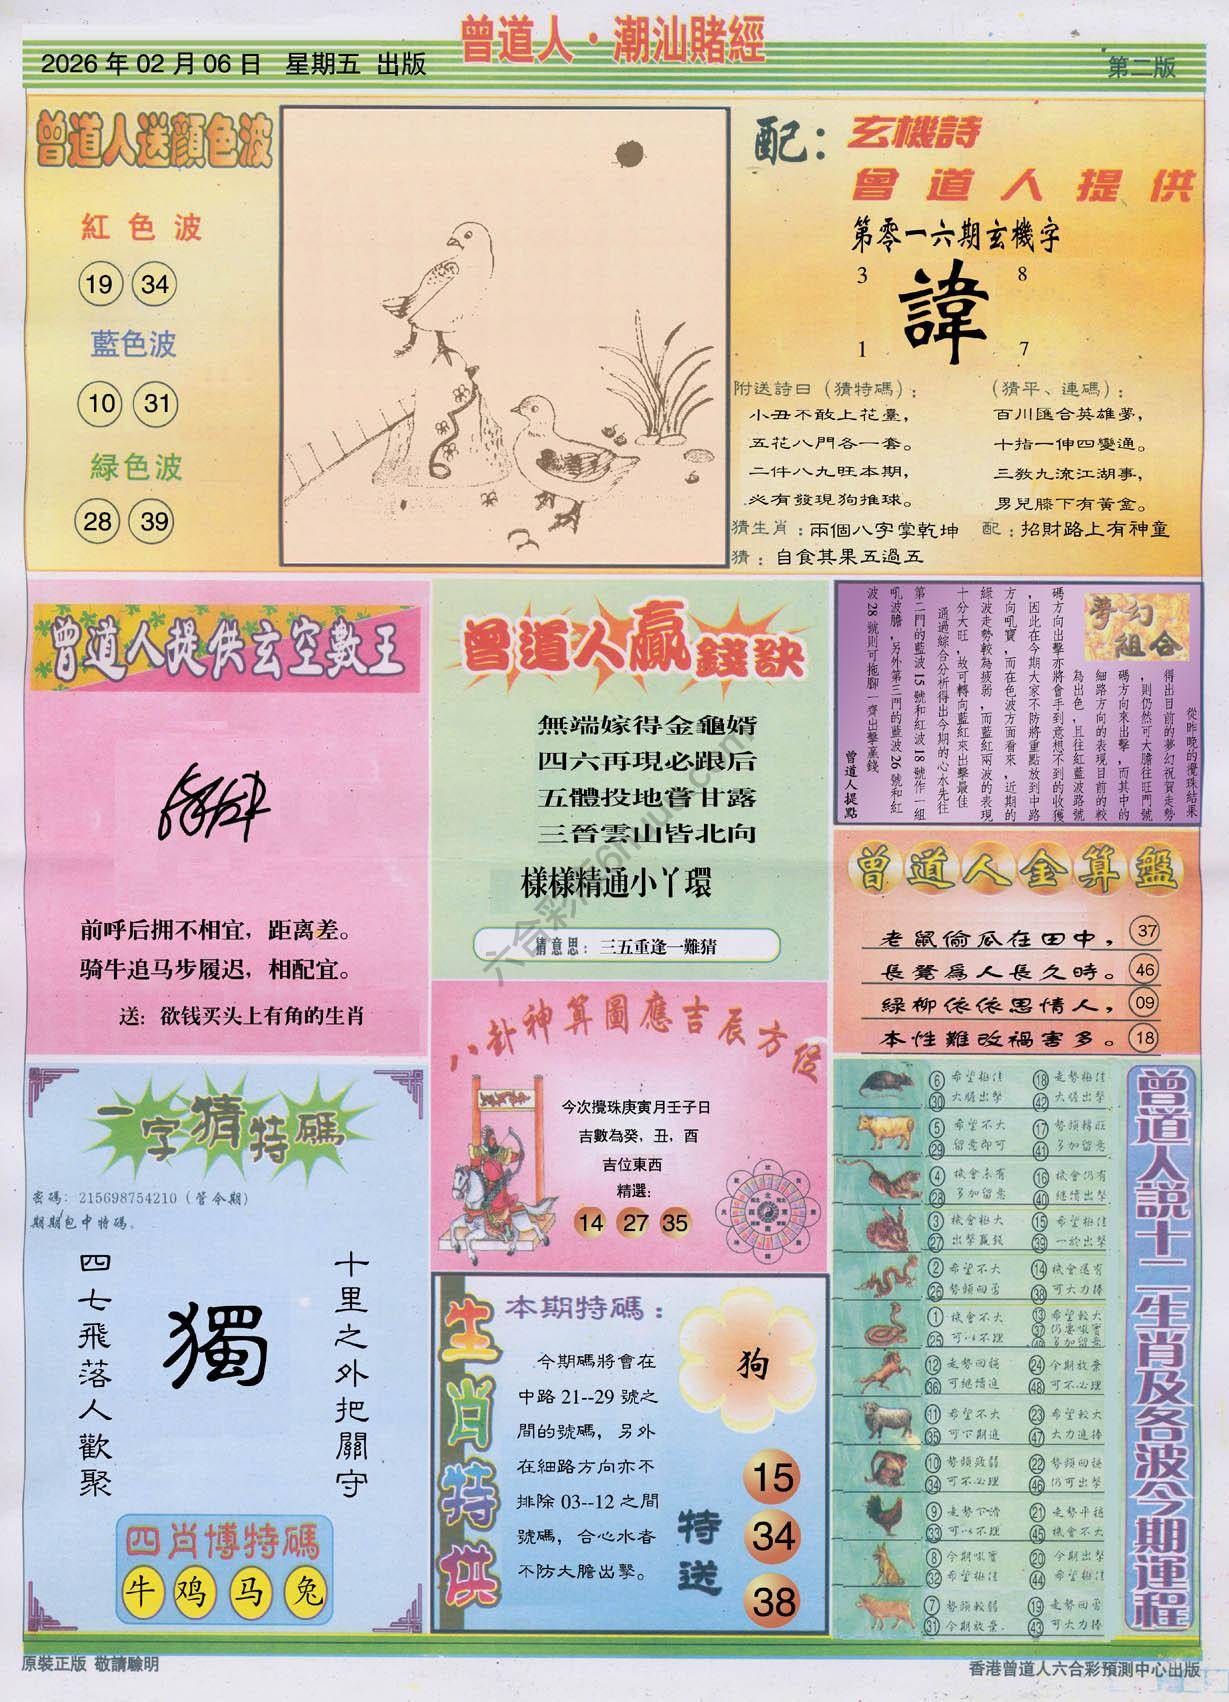 曾道人·潮汕賭經
2026 年 02 月 06 日 星期五 出版
第二版
曾道人送顏色波
紅色波
19 34
藍色波
10 31
緑色波
28 39
配：
玄機詩
曾道人提供
第零一六期玄機字
3 8
諱
1 7
附送詩曰（猜特碼）：
小丑不敢上花臺，
五花八門各一套。
二件八九旺本期，
必有發現狗推球。
（猜平、連碼）：
百川匯合英雄夢，
十指一伸四變通。
三教九流江湖事，
男兒膝下有黃金。
猜生肖：兩個八字掌乾坤
配：招財路上有神童
猜：自食其果五過五
曾道人提供玄空數王
前呼后拥不相宜，距离差。
骑牛追马步履迟，相配宜。
送：欲钱买头上有角的生肖
曾道人贏錢訣
無端嫁得金龜婿
四六再現必跟后
五體投地嘗甘露
三晉雲山皆北向
樣樣精通小丫環
猜意思：三五重逢一難猜
夢幻組合
從昨晚的攪珠結果
得出目前的夢幻祝賀走勢
，則仍然可大膽往旺門號
碼方向來出擊，而其中的
細路方向的表現目前的較
為出色，且往紅藍波路號
碼方向出擊亦將會手到意想不到的收獲
，因此在今期大家不防將重點放到中路
方向吼寶，而在色波方面看來，近期的
綠波走勢較為疲弱，而藍紅兩波的表現
十分大旺，故可轉向藍紅來出擊最佳
通過綜合分析得出今期的心水先往
第二門的藍波 15 號和紅波 18 號作一組
吼波膽，另外第三門的藍波 26 號和紅
波 28 號則可拖腳一齊出擊贏錢
曾道人提點
曾道人金算盤
老鼠偷瓜在田中， 37
長駕為人長久時。 46
緑柳依依思情人， 09
本性難改禍害多。 18
八卦神算圖應吉辰方位
今次攪珠庚寅月壬子日
吉數為癸，丑，酉
吉位東西
精選：
14 27 35
一字猜特碼
密碼：215698754210（管今期）
期期包中特碼。
十里之外把關守
獨
四七飛落人歡聚
四肖博特碼
牛 鸡 马 兔
生肖特供
本期特碼：
今期碼將會在
中路 21--29 號之
間的號碼，另外
在細路方向亦不
排除 03--12 之間
號碼，合心水者
不防大膽出擊。
狗
特送
15
34
38
曾道人説十二生肖及各波今期運程
6 希望極佳 18 走勢極佳
30 大膽出擊 42 大膽出擊
5 希望不大 17 勢頭轉旺
29 留意即可 41 多加留意
4 機會未有 16 機會仍有
28 多加留意 40 繼續出擊
3 機會極大 15 希望極佳
27 出擊贏錢 39 一於出擊
2 希望不大 14 機會還有
26 勢頭回勇 38 可大力捧
1 機會不大 13 希望較大
25 可以不理 37 仍要吼實
49 多加留意
12 走勢回穩 24 今期放棄
36 可繼續進 48 可不必理
11 希望不大 23 希望較大
35 可下期進 47 大力進捧
10 勢頭疲弱 22 勢頭回穩
34 可不必理 46 仍可出擊
9 走勢下滑 21 走勢平穩
33 可以不理 45 機會不大
8 今期吼實 20 今期出擊
32 希望極佳 44 希望極佳
7 勢頭較弱 19 走勢回勇
31 今期放棄 43 可大力捧
原裝正版 敬請驗明
香港曾道人六合彩預測中心出版